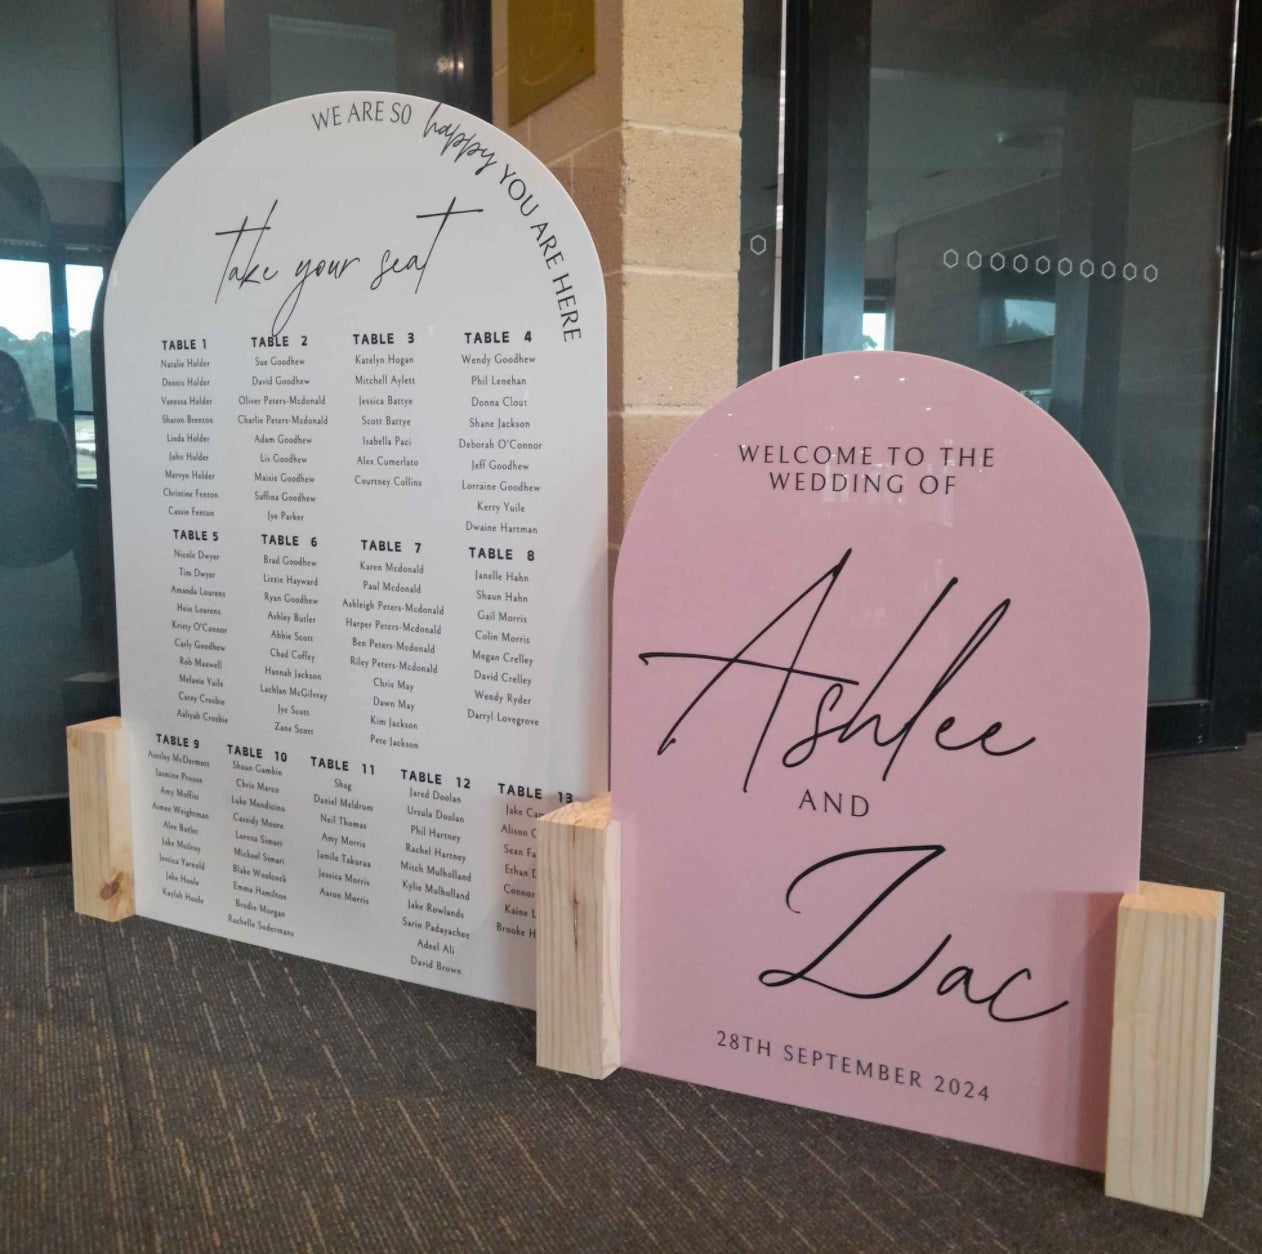 WE ARE SO happy YOU ARE HERE
take your seat
TABLE 1
Natalie Holder
Dennis Holder
Vanessa Holder
Sharon Brenton
Linda Holder
John Holder
Mervyn Holder
Christine Fenton
Cassie Fenton
TABLE 2
Sue Goodhew
David Goodhew
Oliver Peters-Mcdonald
Charlie Peters-Mcdonald
Adam Goodhew
Lis Goodhew
Maisie Goodhew
Saffina Goodhew
Jye Parker
TABLE 3
Katelyn Hogan
Mitchell Aylett
Jessica Battye
Scott Battye
Isabella Paci
Alex Cumerlato
Courtney Collins
TABLE 4
Wendy Goodhew
Phil Lenehan
Donna Clout
Shane Jackson
Deborah O'Connor
Jeff Goodhew
Lorraine Goodhew
Kerry Yuile
Dwaine Hartman
TABLE 5
Nicole Dwyer
Tim Dwyer
Amanda Lourens
Hein Lourens
Kristy O'Connor
Carly Goodhew
Rob Maxwell
Melanie Yuile
Carey Crosbie
Aaliyah Crosbie
TABLE 6
Brad Goodhew
Lizzie Hayward
Ryan Goodhew
Ashley Butler
Abbie Scott
Chad Coffey
Hannah Jackson
Lachlan McGilvray
Jye Scott
Zane Scott
TABLE 7
Karen Mcdonald
Paul Mcdonald
Ashleigh Peters-Mcdonald
Harper Peters-Mcdonald
Ben Peters-Mcdonald
Riley Peters-Mcdonald
Chris May
Dawn May
Kim Jackson
Pete Jackson
TABLE 8
Janelle Hahn
Shaun Hahn
Gail Morris
Colin Morris
Megan Crelley
David Crelley
Wendy Ryder
Darryl Lovegrove
TABLE 9
Ainsley McDermott
Jasmine Prouse
Amy Moffitt
Aimee Weightman
Alex Butler
Jake Mcilroy
Jessica Yarnold
Jake Hoole
Kaylah Hoole
TABLE 10
Shaun Gambin
Chris Marco
Luke Mendicino
Cassidy Moore
Lorena Simari
Michael Simari
Blake Woolcock
Emma Hamilton
Brodie Morgan
Rachelle Sodermans
TABLE 11
Shag
Daniel Meldrum
Neil Thomas
Amy Morris
Jamile Takurua
Jessica Morris
Aaron Morris
TABLE 12
Jared Doolan
Ursula Doolan
Phil Hartney
Rachel Hartney
Mitch Mulholland
Kylie Mulholland
Jake Rowlands
Sarin Padayachee
Adeel Ali
David Brown
TABLE 13
Jake
Alison
Sean
Ethan
Connor
Kaine
Brooke
WELCOME TO THE
WEDDING OF
Ashlee
AND
Zac
28TH SEPTEMBER 2024